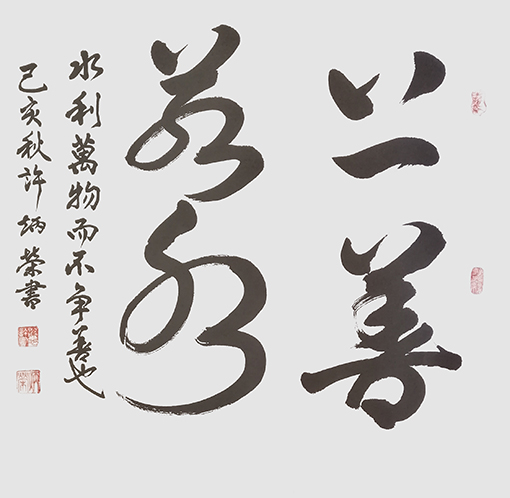 上善
若水
水利萬物而不争善也
己亥秋許炳榮書